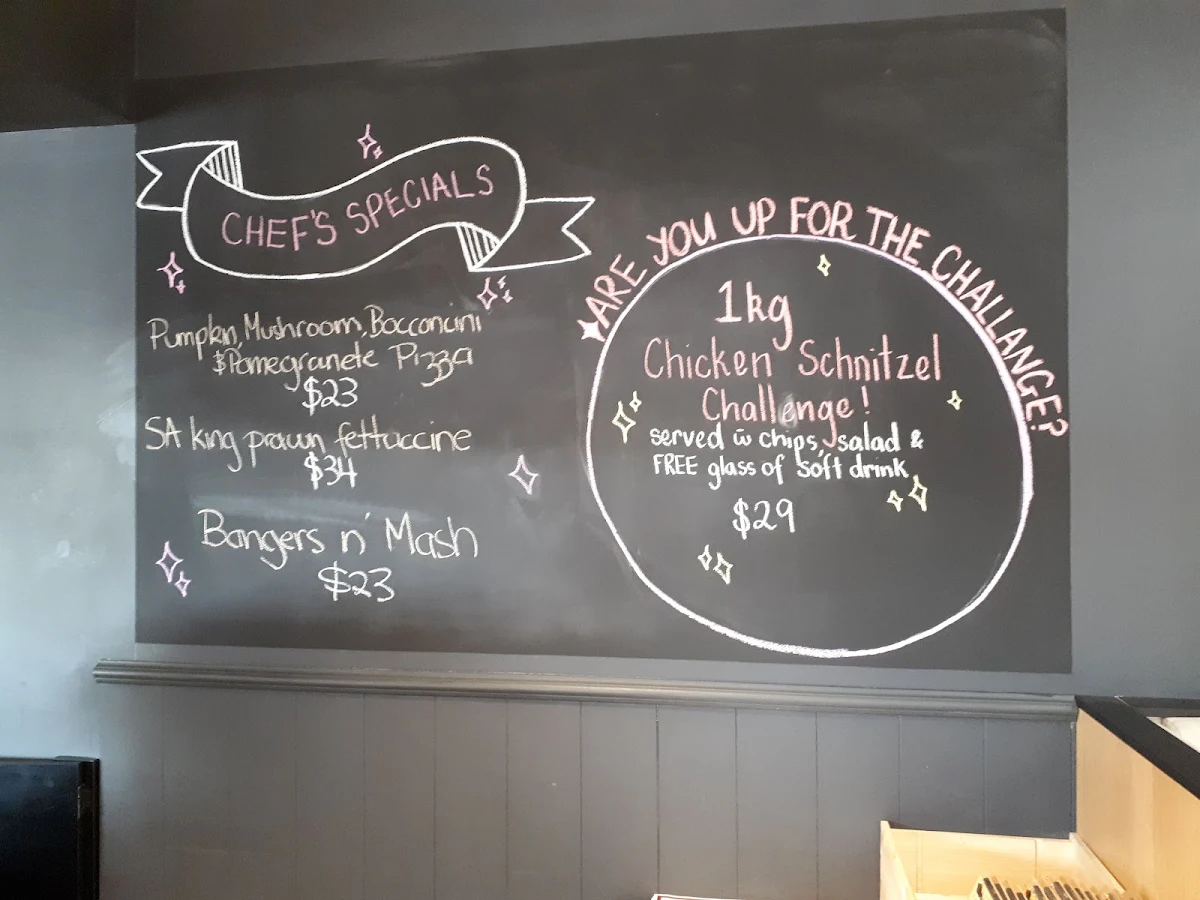 CHEF'S SPECIALS
Pumpkin, Mushroom, Bocconcini
& Pomegranete Pizza
$23
SA king prawn fettuccine
$34
Bangers n' Mash
$23
ARE YOU UP FOR THE CHALLANGE?
1kg
Chicken Schnitzel
Challenge!
served w̄ chips, salad &
FREE glass of soft drink
$29